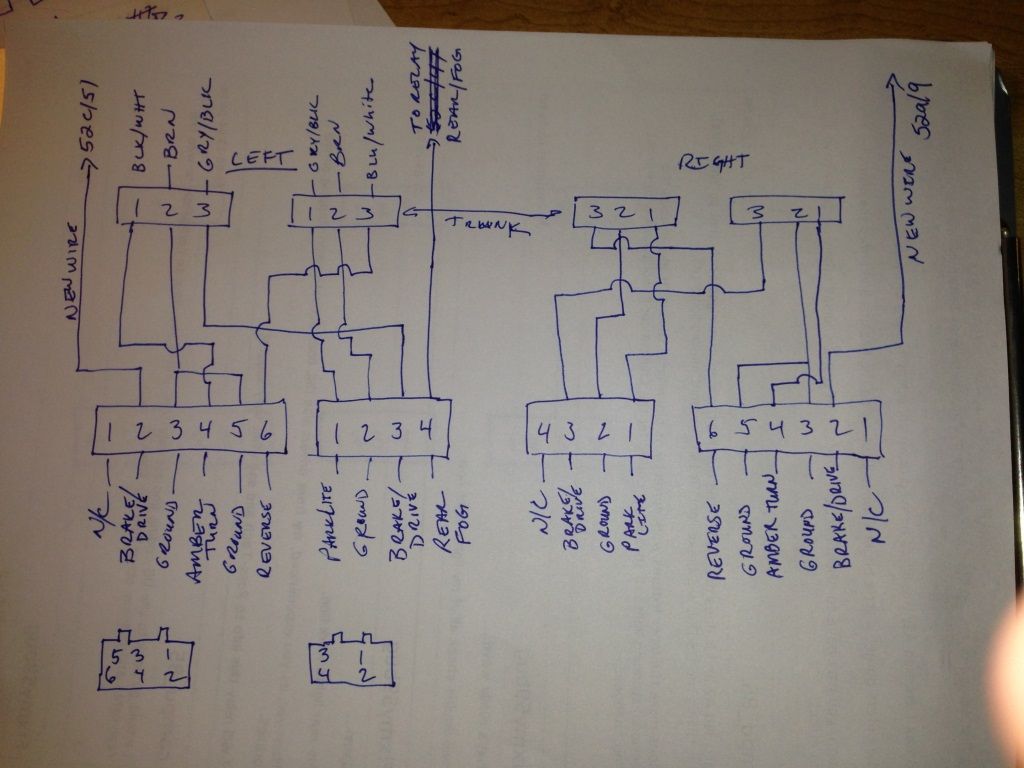 NEW WIRE
52c(5)
BLK/WHT
BRN
GRY/BLK
LEFT
GRY/BLK
BRN
BLK/White
TO RELAY
REAR/FOG
TRUNK
RIGHT
NEW WIRE
52a/9
1 2 3
1 2 3
3 2 1
3 2 1
1 2 3 4 5 6
1 2 3 4
4 3 2 1
6 5 4 3 2 1
N/C
BRAKE/
DRIVE
GROUND
AMBER
TURN
GROUND
REVERSE
PARKLITE
GROUND
BRAKE/
DRIVE
REAR
FOG
N/C
BRAKE/
DRIVE
GROUND
PARK
LITE
REVERSE
GROUND
AMBER TURN
GROUND
BRAKE/DRIVE
N/C
5 3 1
6 4 2
3 1
4 2